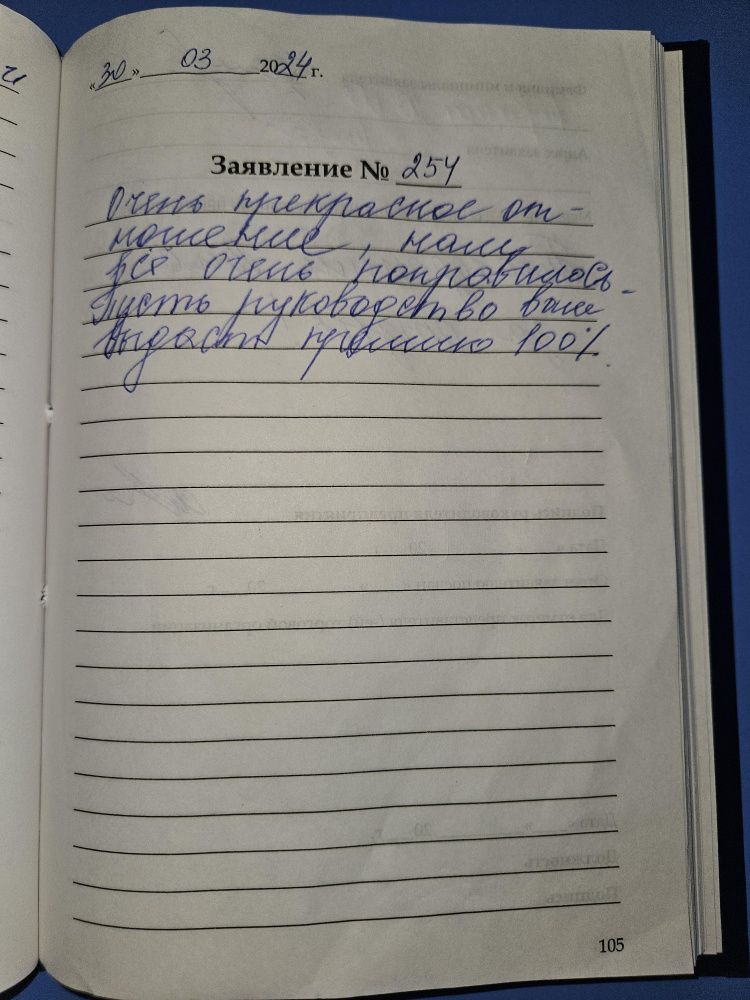 «30» 03 2024 г.
Заявление № 254
Очень прекрасное от-
ношение, нам
всё очень понравилось.
Пусть руководство вам
выдаст премию 100%.
105